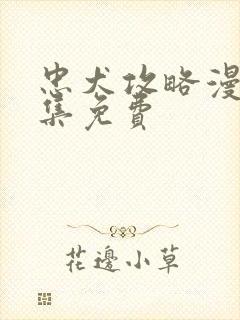 忠犬攻略漫
集免費
花邊小草